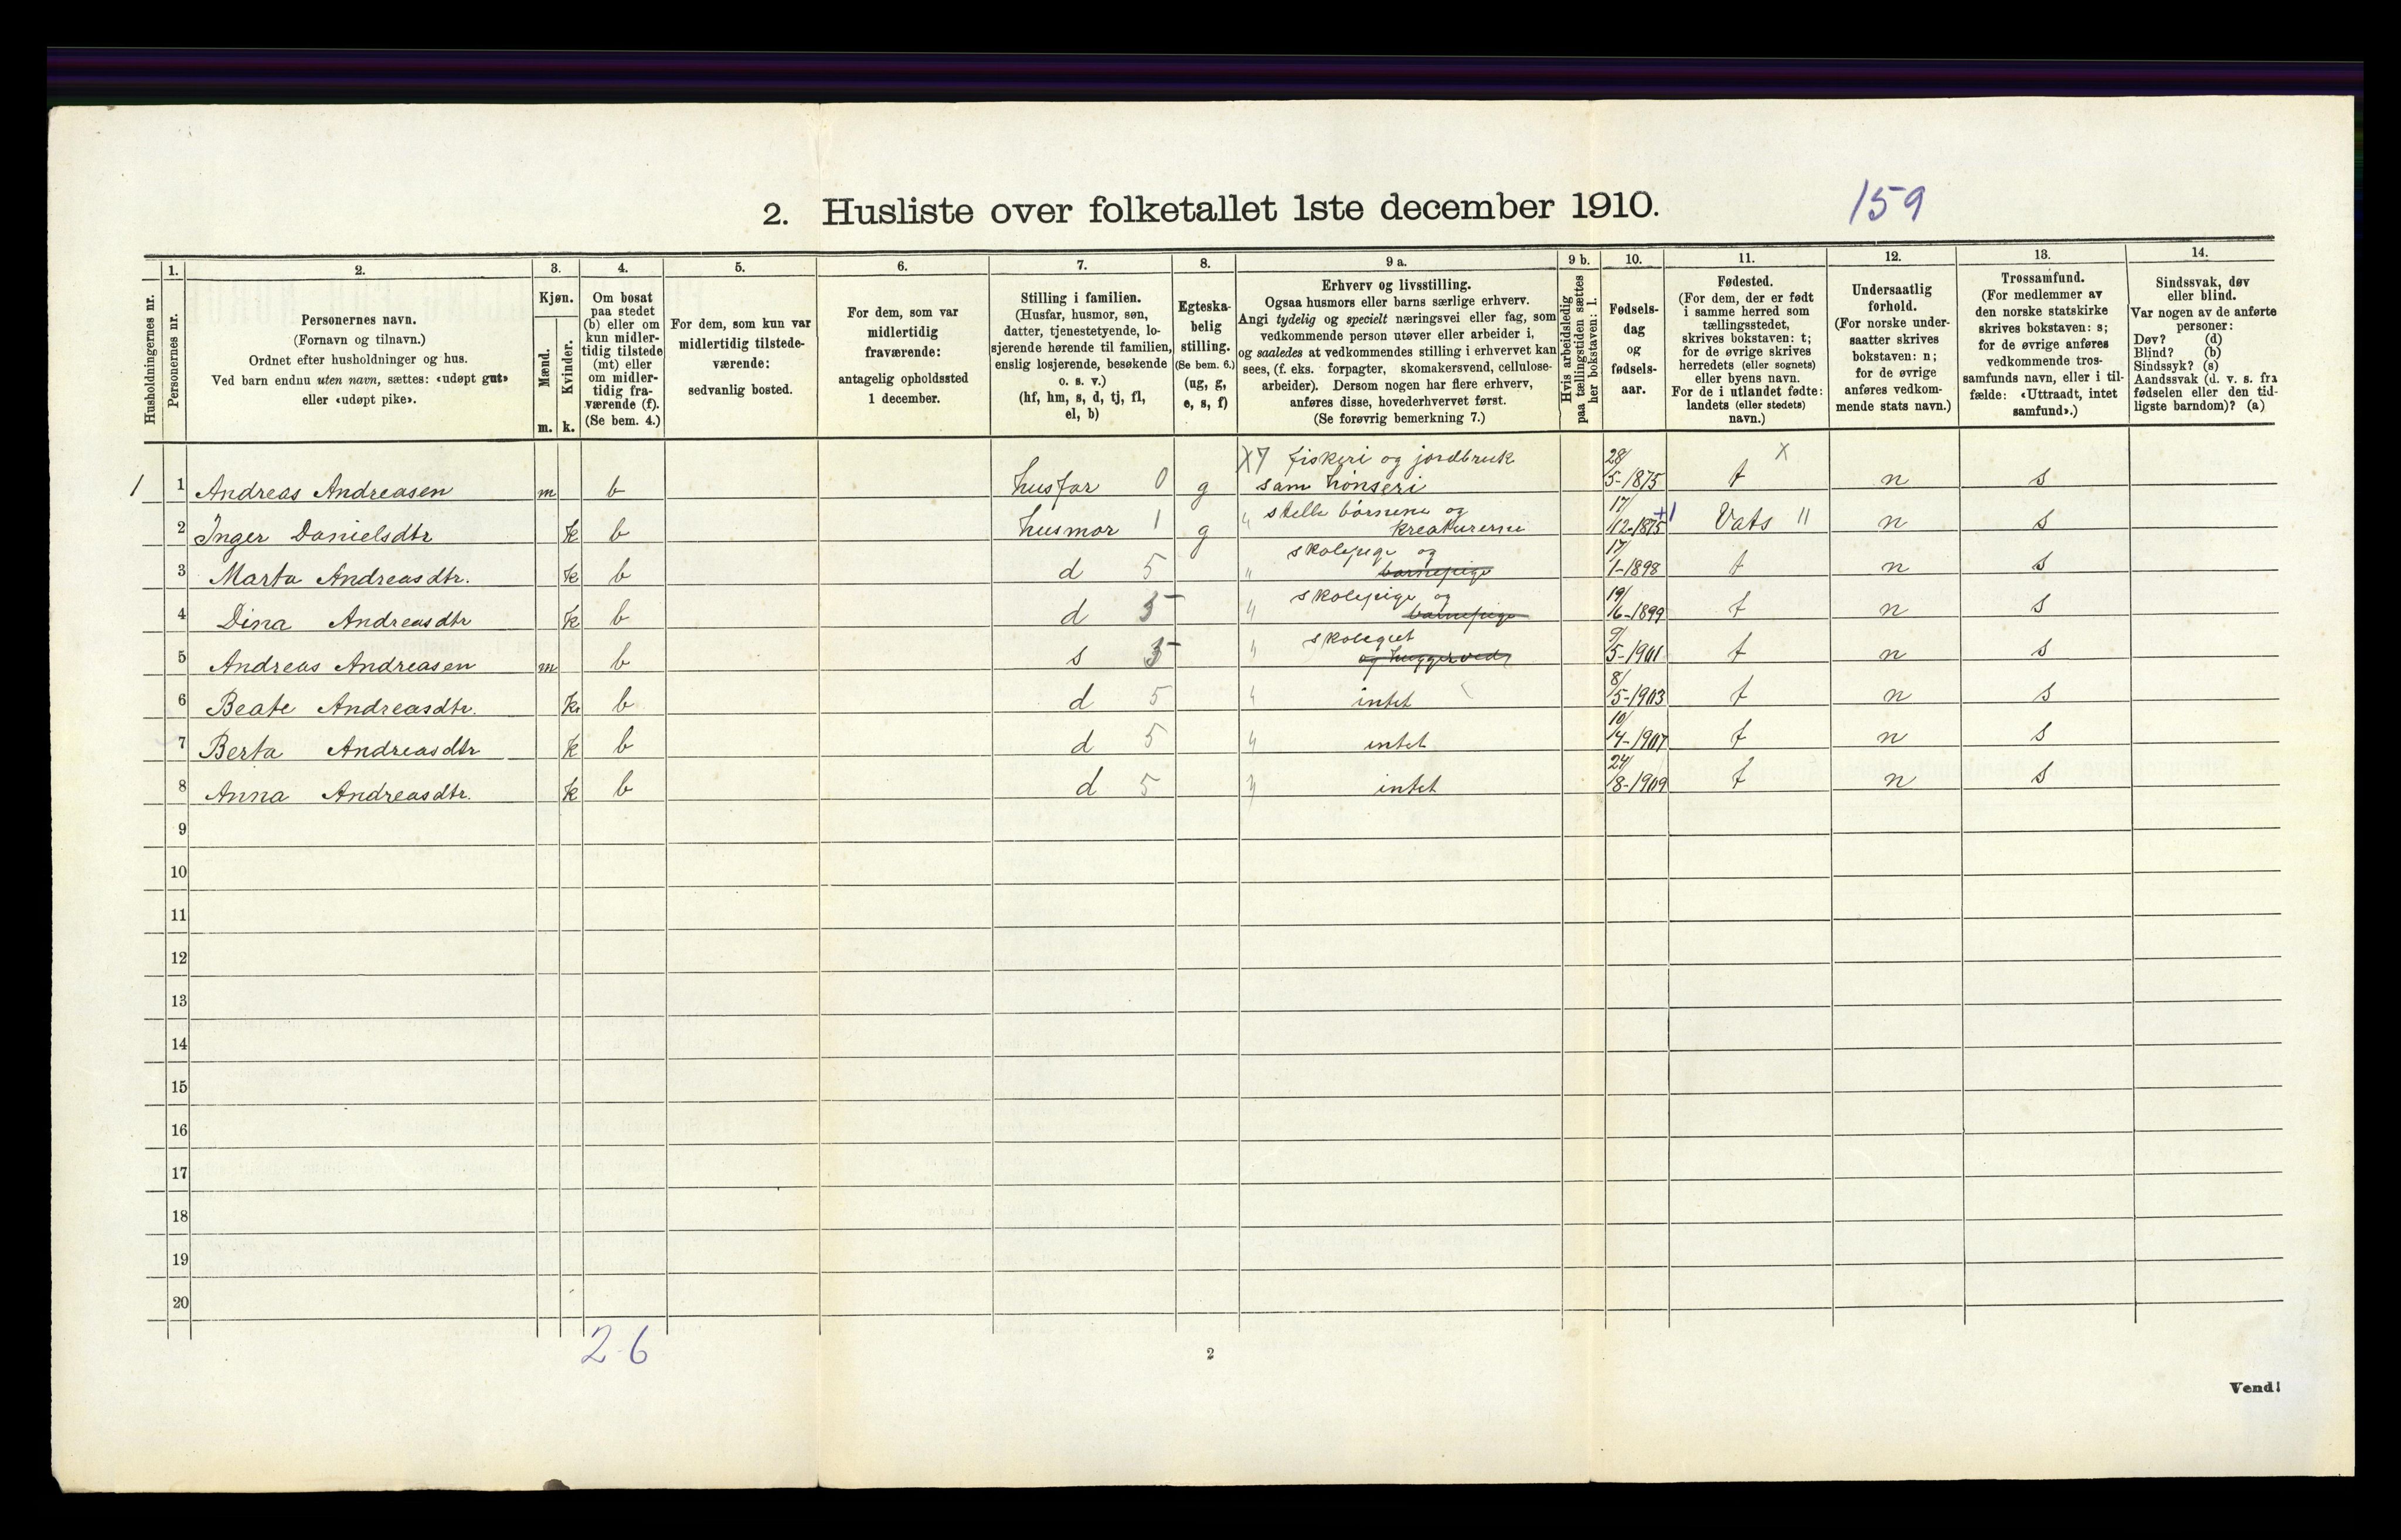 2. Husliste over folketallet 1ste december 1910.
159
Husholdningernes nr.
1.
Personernes nr.
2.
Personernes navn.
(Fornavn og tilnavn.)
Ordnet efter husholdninger og hus.
Ved barn endnu uten navn, sættes: «udøpt gut»
eller «udøpt pike».
3.
Kjøn.
Mænd.
m.
Kvinder.
k.
4.
Om bosat
paa stedet
(b) eller om
kun midler-
tidig tilstede
(mt) eller
om midler-
tidig fra-
værende (f).
(Se bem. 4.)
5.
For dem, som kun var
midlertidig tilstede-
værende:
sedvanlig bosted.
6.
For dem, som var
midlertidig
fraværende:
antagelig opholdssted
1 december.
7.
Stilling i familien.
(Husfar, husmor, søn,
datter, tjenestetyende, lo-
sjerende hørende til familien,
enslig losjerende, besøkende
o. s. v.)
(hf, hm, s, d, tj, fl,
el, b)
8.
Egteska-
belig
stilling.
(Se bem. 6.)
(ug, g,
e, s, f)
9 a.
Erhverv og livsstilling.
Ogsaa husmors eller barns særlige erhverv.
Angi tydelig og specielt næringsvei eller fag, som
vedkommende person utøver eller arbeider i,
og saaledes at vedkommendes stilling i erhvervet kan
sees, (f. eks. forpagter, skomakersvend, cellulose-
arbeider). Dersom nogen har flere erhverv,
anføres disse, hovederhvervet først.
(Se forøvrig bemerkning 7.)
9 b.
Hvis arbeidsledig
paa tællingstiden sættes
her bokstaven: l.
10.
Fødsels-
dag
og
fødsels-
aar.
11.
Fødested.
(For dem, der er født
i samme herred som
tællingsstedet,
skrives bokstaven: t;
for de øvrige skrives
herredets (eller sognets)
eller byens navn.
For de i utlandet fødte:
landets (eller stedets)
navn.)
12.
Undersaatlig
forhold.
(For norske under-
saatter skrives
bokstaven: n;
for de øvrige
anføres vedkom-
mende stats navn.)
13.
Trossamfund.
(For medlemmer av
den norske statskirke
skrives bokstaven: s;
for de øvrige anføres
vedkommende tros-
samfunds navn, eller i til-
fælde: «Uttraadt, intet
samfund».)
14.
Sindssvak, døv
eller blind.
Var nogen av de anførte
personer:
Døv? (d)
Blind? (b)
Sindssyk? (s)
Aandssvak (d. v. s. fra
fødselen eller den tid-
ligste barndom)? (a)
1 1 Andreas Andreasen m b husfar 0 g X7 fiskeri og jordbruk sam hönseri 28/5-1875 t X n s
2 Inger Danielsdtr k b husmor 1 g " stelle börnene og kreaturerne 17/12-1875 +1 Vats " n s
3 Marta Andreasdtr. k b d 5 " skolepige og barnepige 17/1-1898 t n s
4 Dina Andreasdtr k b d 5 " skolepige og barnepige 19/6-1899 t n s
5 Andreas Andreasen m b s 5 " skolegut og hugger ved 9/5-1901 t n s
6 Beate Andreasdtr. k b d 5 " intet 8/5-1903 t n s
7 Berta Andreasdtr k b d 5 " intet 10/4-1907 t n s
8 Anna Andreasdtr. k b d 5 " intet 24/8-1909 t n s
9
10
11
12
13
14
15
16
17
18
19
20
2-6
2
Vend!